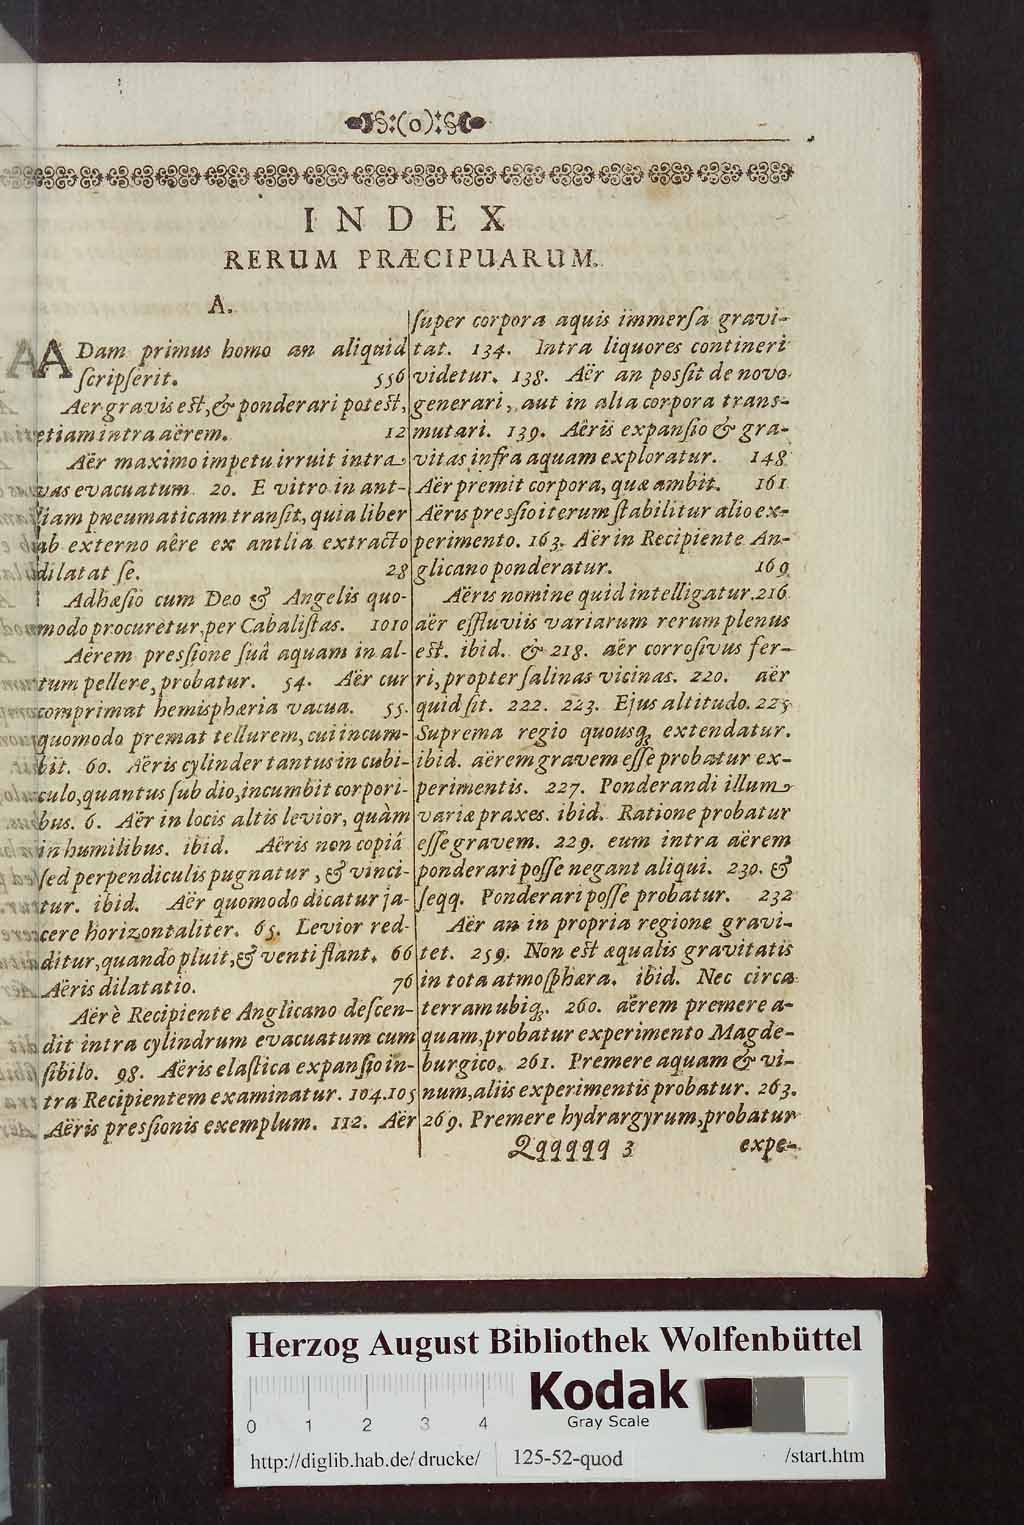 §:(0):§
INDEX
RERUM PRÆCIPUARUM.
A.
ADam primus homo an aliquid
ſcripſerit. 556
Aer gravis eſt, & ponderari poteſt,
etiam intra aërem. 12
Aër maximo impetu irruit intra
vas evacuatum. 20. E vitro in ant-
liam pneumaticam tranſit, quia liber
ab externo aêre ex antlia extracto
dilatat ſe. 28
Adhæſio cum Deo & Angelis quo-
modo procuretur, per Cabaliſtas. 1010
Aërem preſſione ſuâ aquam in al-
tum pellere, probatur. 54. Aër cur
comprimat hemisphæria vacua. 55.
quomodo premat tellurem, cui incum-
bit. 60. Aëris cylinder tantus in cubi-
culo, quantus ſub dio, incumbit corpori-
bus. 6. Aër in locis altis levior, quàm
in humilibus. ibid. Aêris non copiâ
ſed perpendiculis pugnatur, & vinci-
tur. ibid. Aër quomodo dicatur ja-
cere horizontaliter. 65. Levior red-
ditur, quando pluit, & venti flant. 66
Aëris dilatatio. 76
Aër è Recipiente Anglicano deſcen-
dit intra cylindrum evacuatum cum
ſibilo. 98. Aëris elaſtica expanſio in-
tra Recipientem examinatur. 104.105
Aëris preſſionis exemplum. 112. Aër
ſuper corpora aquis immerſa gravi-
tat. 134. Intra liquores contineri
videtur. 138. Aër an possit de novo
generari, aut in alia corpora trans-
mutari. 139. Aêris expanſio & gra-
vitas infra aquam exploratur. 148
Aër premit corpora, quæ ambit. 161
Aëris preſſio iterum ſtabilitur alio ex-
perimento. 163. Aër in Recipiente An-
glicano ponderatur. 169
Aëris nomine quid intelligatur. 216
aër effluviis variarum rerum plenus
eſt. ibid. & 218. aër corroſivus fer-
ri, propter ſalinas vicinas. 220. aër
quid ſit. 222. 223. Ejus altitudo. 225
Suprema regio quousq; extendatur.
ibid. aërem gravem eſſe probatur ex-
perimentis. 227. Ponderandi illum
variæ praxes. ibid. Ratione probatur
eſſe gravem. 229. eum intra aërem
ponderari poſſe negant aliqui. 230. &
ſeqq. Ponderari poſſe probatur. 232
Aër an in propria regione gravi-
tet. 259. Non eſt æqualis gravitatis
in tota atmoſphæra. ibid. Nec circa
terram ubiq;. 260. aërem premere a-
quam, probatur experimento Magde-
burgico. 261. Premere aquam & vi-
num, aliis experimentis probatur. 263.
269. Premere hydrargyrum, probatur
Qqqqqq 3 expe-
Herzog August Bibliothek Wolfenbüttel
Kodak
Gray Scale
0 1 2 3 4
http://diglib.hab.de/drucke/ 125-52-quod /start.htm